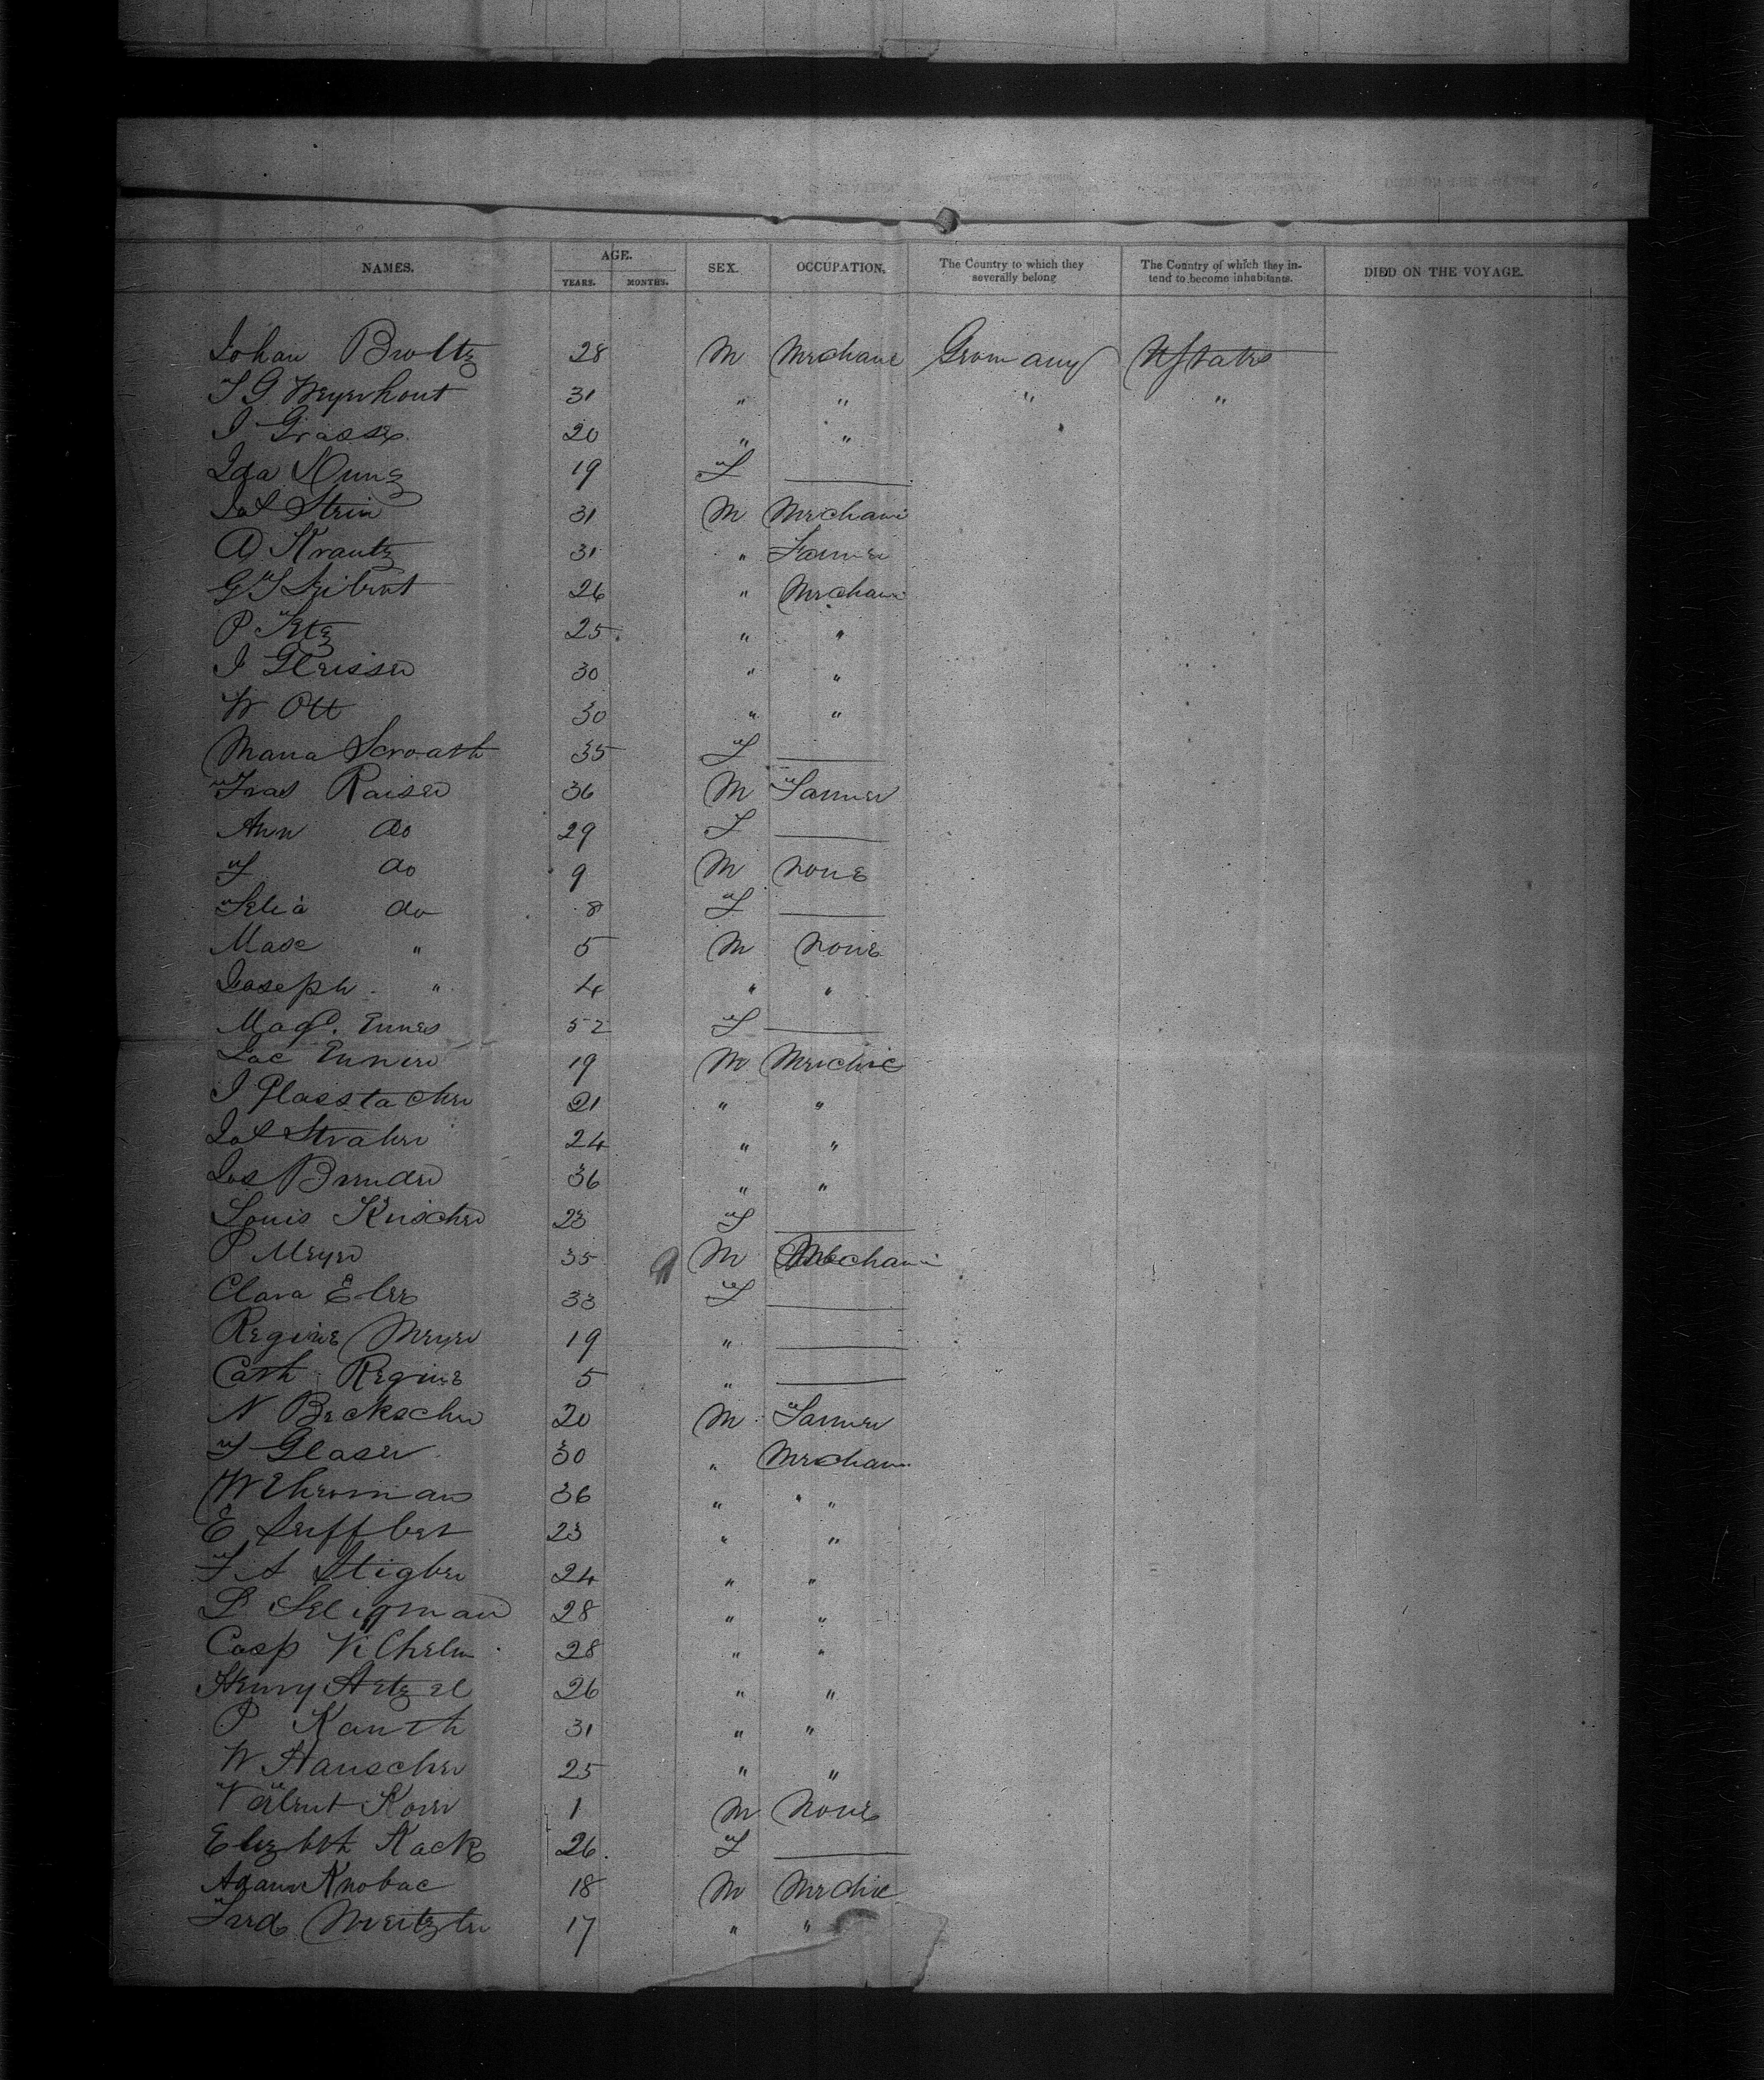 NAMES. AGE. SEX. OCCUPATION. The Country to which they severally belong The Country of which they intend to become inhabitants. DIED ON THE VOYAGE.
YEARS. MONTHS.
Johan Broltz 28 M Mechanic Germany U States
31 " " " "
J Grasse 20 " "
Ida 19 F
Jos Stein 31 M Mechani
A Krautz 31 " Farmer
G F Seibert 26 " Mechani
P Fetz 25 " "
J Gleisser 30 " "
W Ott 30 " "
Maria 35 F
Fras Raiser 36 M Farmer
Ann do 29 F
F do 9 M none
Felia do 8 F
Max " 5 M none
Joseph " 4 " "
Magd. Ennes 52 F
Jac 19 M Mechic
J Glasstacker 21 " "
Jos Straher 24 " "
Jos Bruder 36 " "
Louis Krischer 23 F
P Meyer 35 M Mechani
Clara Elre 33 F
Regine Meyer 19 "
Cath Regine 5 "
N Beckscher 20 M Farmer
F Glaser 30 " Mechani
W Ehermann 36 " "
E Seiffbert 23 " "
F A Stigber 24 " "
L Seligman 28 " "
Casp Vilhelm 28 " "
Henry Artzel 26 " "
P Kanth 31 " "
W Hauscher 25 " "
Valent Korer 1 M None
Elizbth Kack 26 F
Adam Knobac 18 M Mechic
Ferd 17 " "